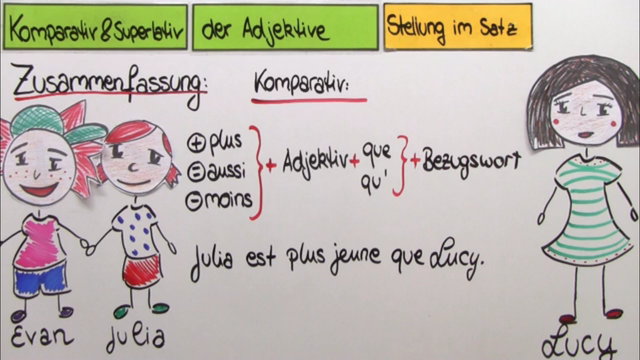 Komparativ & Superlativ der Adjektive Stellung im Satz
Zusammenfassung: Komparativ:
⊕ plus
⊜ aussi
⊖ moins
+ Adjektiv + que qu' + Bezugswort
Julia est plus jeune que Lucy.
Evan Julia Lucy